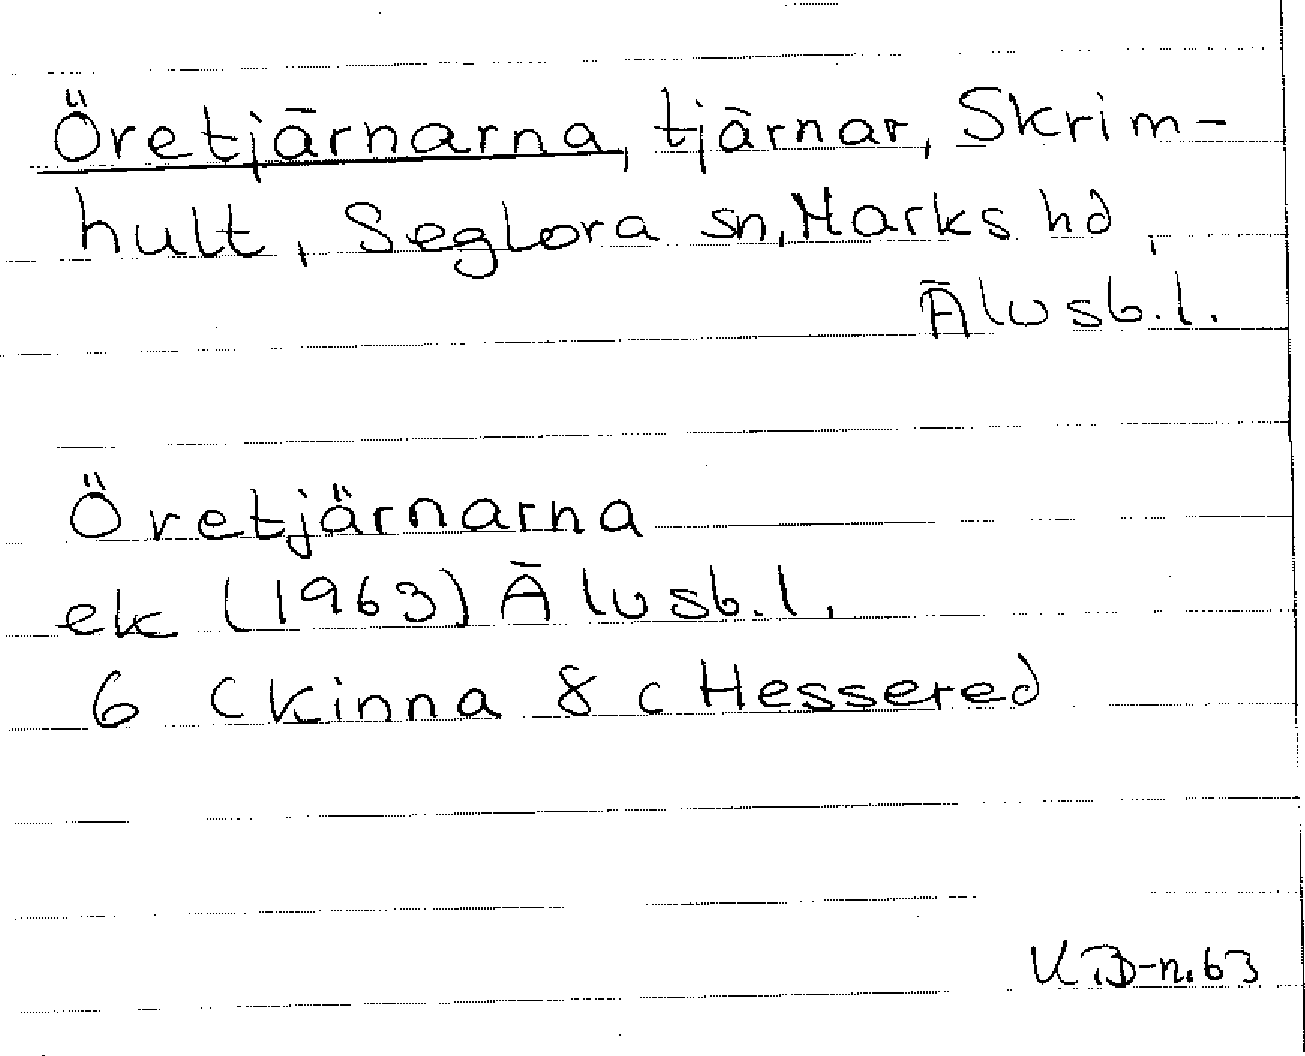 Öretjärnarna, tjärnar, Skrim-
hult, Seglora sn, Marks hd,
Älvsb.l.
Öretjärnarna
ek (1963) Älvsb.l.
6 C Kinna 8 c Hessered
KB-n.63